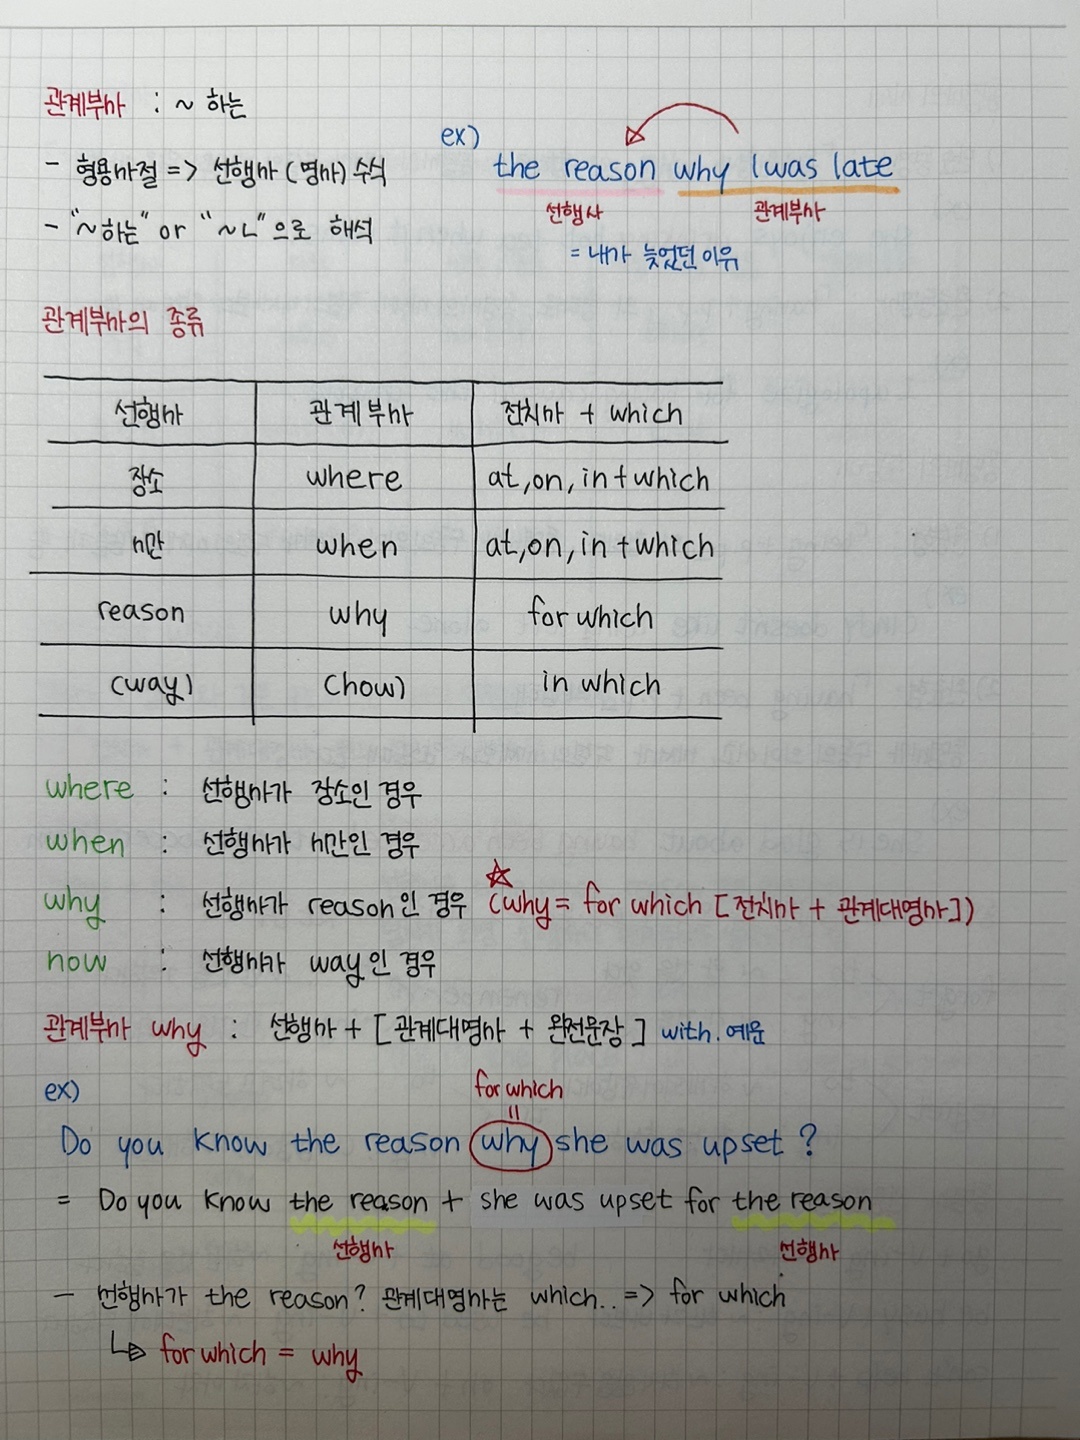 관계부사 : ~ 하는
- 형용사절 => 선행사 (명사) 수식
- "~하는" or "~ㄴ"으로 해석
ex)
the reason why I was late
선행사 관계부사
= 내가 늦었던 이유
관계부사의 종류
선행사 관계부사 전치사 + which
장소 where at, on, in + which
시간 when at, on, in + which
reason why for which
(way) (how) in which
where : 선행사가 장소인 경우
when : 선행사가 시간인 경우
why : 선행사가 reason인 경우 ☆(why = for which [전치사 + 관계대명사])
how : 선행사가 way인 경우
관계부사 why : 선행사 + [관계대명사 + 완전문장] with. 예운
ex)
for which
=
Do you know the reason why she was upset ?
= Do you know the reason + she was upset for the reason
선행사 선행사
- 선행사가 the reason? 관계대명사는 which.. => for which
↳ for which = why